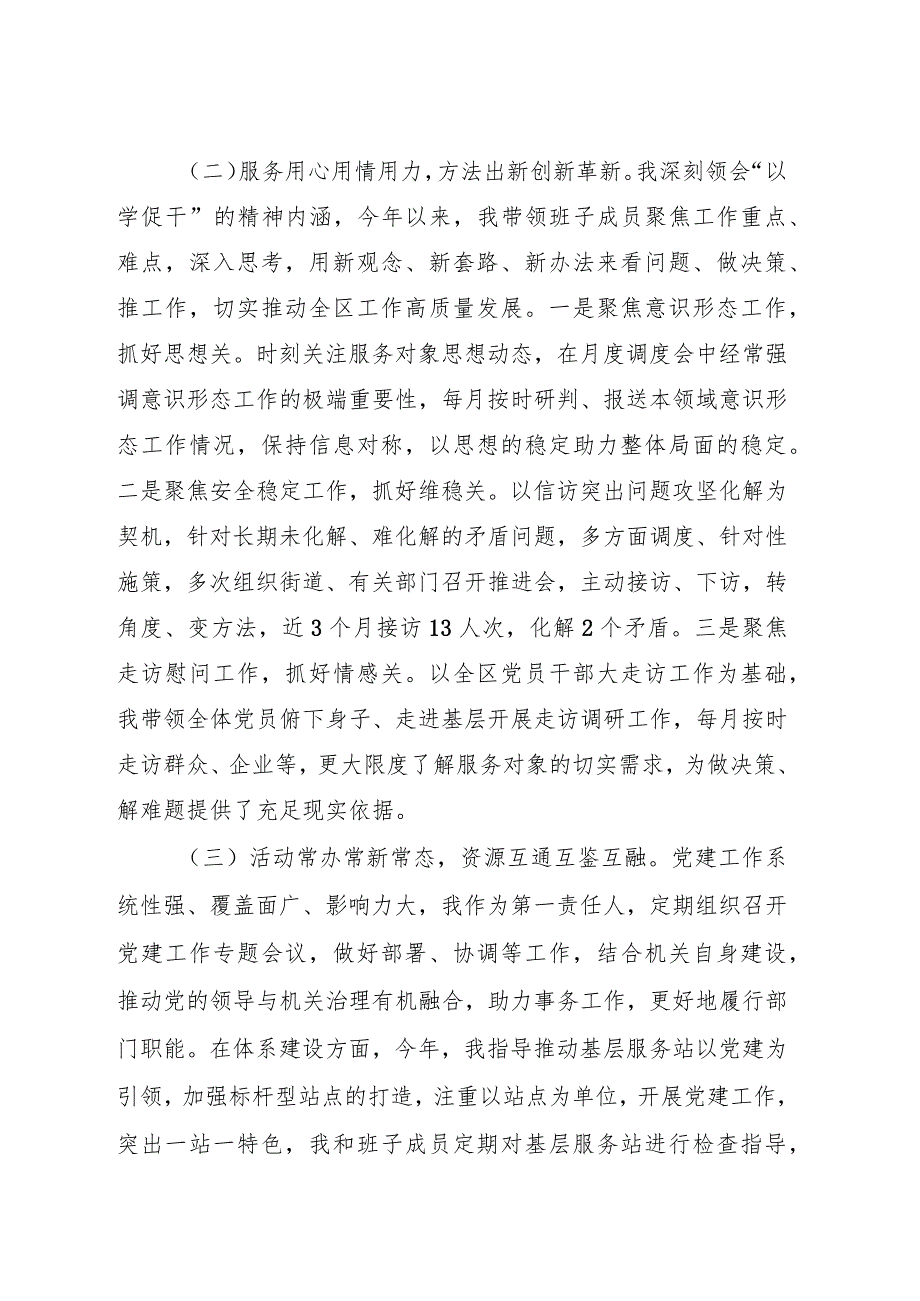 （二）服务用心用情用力，方法出新创新革新。我深刻领会“以
学促干”的精神内涵，今年以来，我带领班子成员聚焦工作重点、
难点，深入思考，用新观念、新套路、新办法来看问题、做决策、
推工作，切实推动全区工作高质量发展。一是聚焦意识形态工作，
抓好思想关。时刻关注服务对象思想动态，在月度调度会中经常强
调意识形态工作的极端重要性，每月按时研判、报送本领域意识形
态工作情况，保持信息对称，以思想的稳定助力整体局面的稳定。
二是聚焦安全稳定工作，抓好维稳关。以信访突出问题攻坚化解为
契机，针对长期未化解、难化解的矛盾问题，多方面调度、针对性
施策，多次组织街道、有关部门召开推进会，主动接访、下访，转
角度、变方法，近3个月接访13人次，化解2个矛盾。三是聚焦
走访慰问工作，抓好情感关。以全区党员干部大走访工作为基础，
我带领全体党员俯下身子、走进基层开展走访调研工作，每月按时
走访群众、企业等，更大限度了解服务对象的切实需求，为做决策、
解难题提供了充足现实依据。
（三）活动常办常新常态，资源互通互鉴互融。党建工作系
统性强、覆盖面广、影响力大，我作为第一责任人，定期组织召开
党建工作专题会议，做好部署、协调等工作，结合机关自身建设，
推动党的领导与机关治理有机融合，助力事务工作，更好地履行部
门职能。在体系建设方面，今年，我指导推动基层服务站以党建为
引领，加强标杆型站点的打造，注重以站点为单位，开展党建工作，
突出一站一特色，我和班子成员定期对基层服务站进行检查指导，